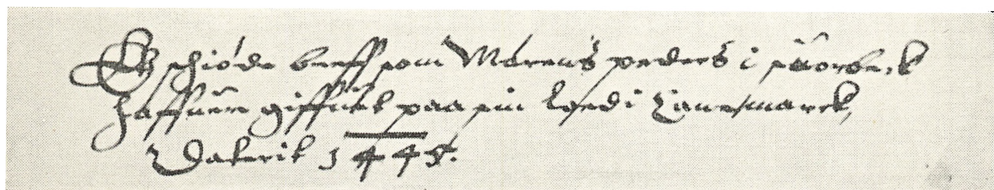 Et schiøde breff som Marcus peders i
haffuer giffuet paa sin Eyedi marck,
Daterit 1445.